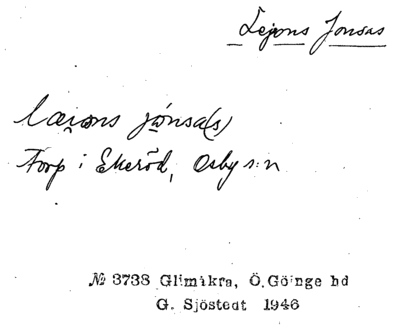 Lejons Jonsas
læjons jónsa(s)
Torp i Ekeröd, Osby s:n
№ 3738 Glimåkra, Ö. Göinge hd
G. Sjöstedt 1946